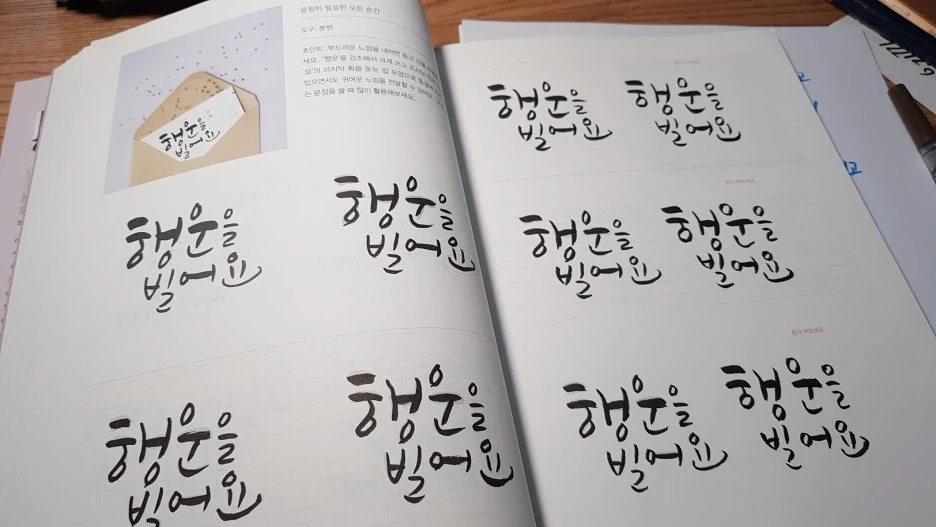 응원이 필요한 모든 순간
도구: 붓펜
포인트: 부드러운 느낌을 내려면
세요. '행운'을 강조해서 크게 쓰고
'요'의 마지막 획을 웃는 입 모양으로
있으면서도 귀여운 느낌을 전달할 수
는 문장을 쓸 때 많이 활용해보세요.
행운을
빌어요
행운을
빌어요
행운을
빌어요
행운을
빌어요
행운을
빌어요
행운을
빌어요
행운을
빌어요
행운을
빌어요
행운을
빌어요
혼자 써보세요
행운을
빌어요
행운을
빌어요